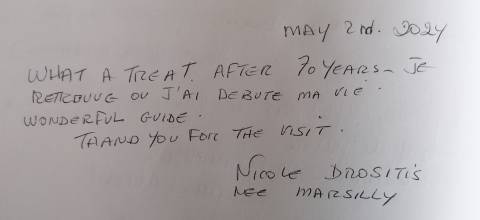 MAY 2rd. 2024
WHAT A TREAT. AFTER 70 YEARS - JE
RETROUVE OU J'AI DEBUTE MA VIE.
WONDERFUL GUIDE.
THAND YOU FOR THE VISIT.
NICOLE DROSITIS
NEE MARSILLY